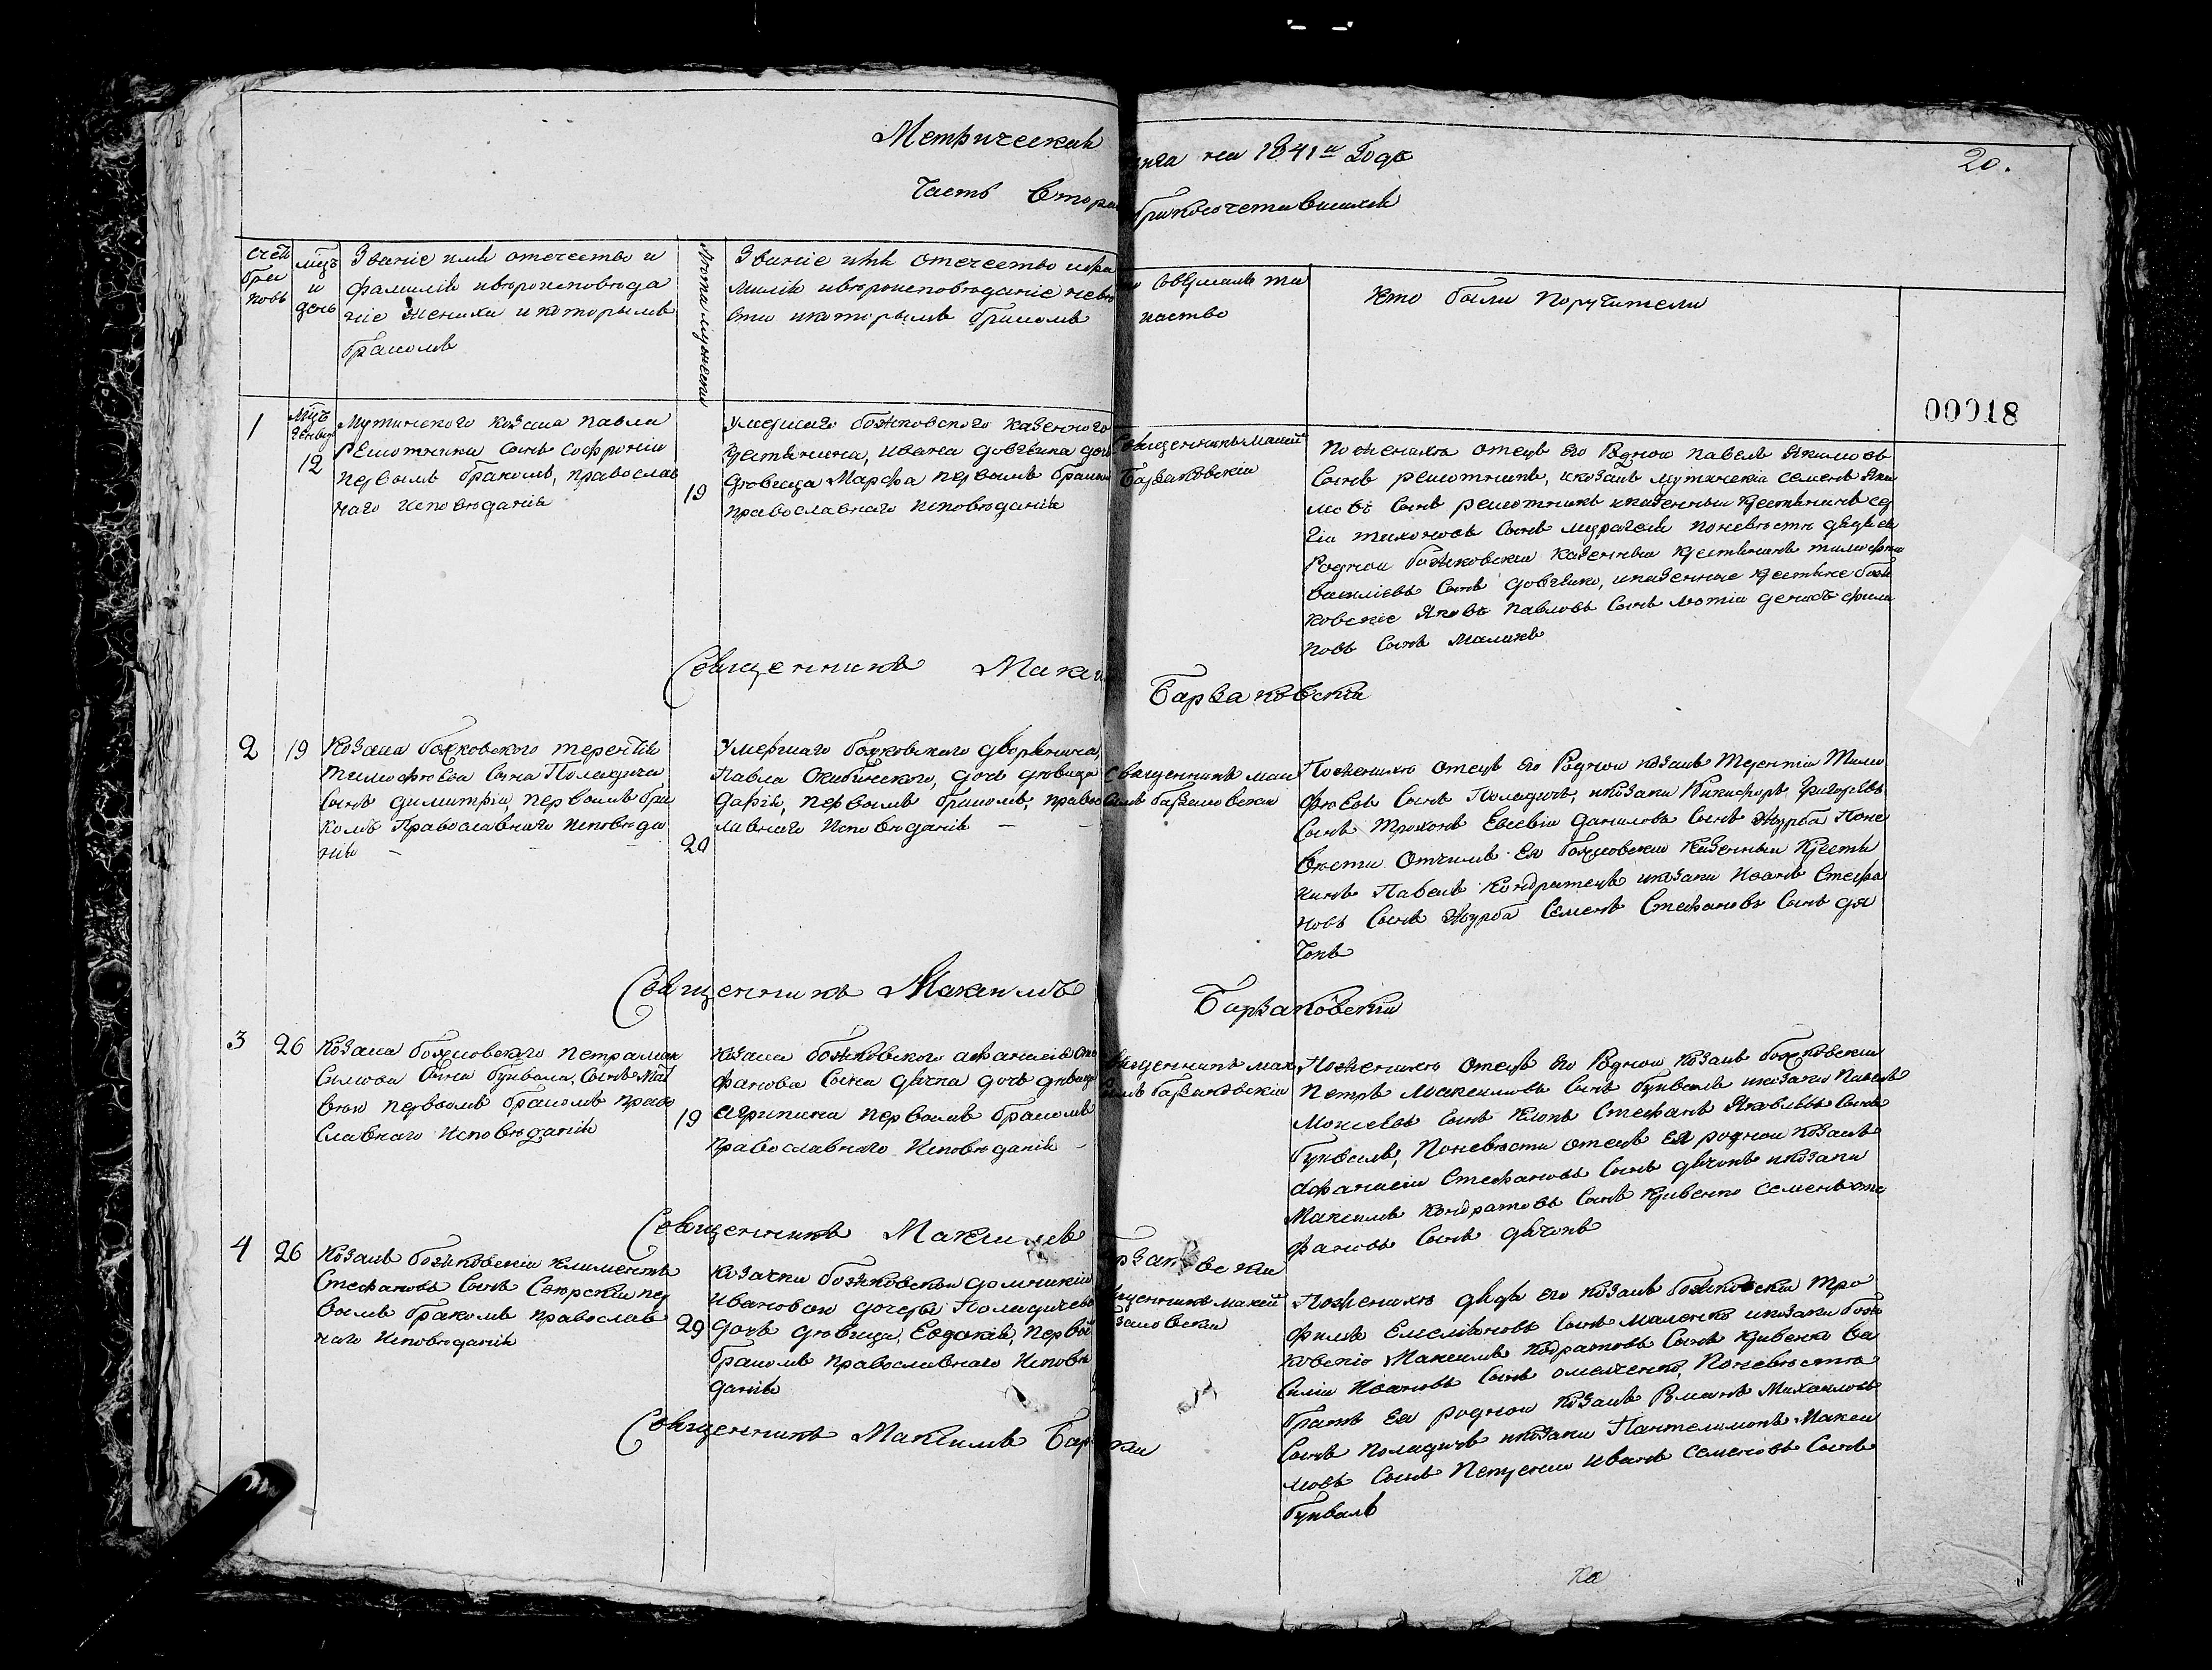 Метрическая книга на 1841й Годъ
20.
Часть Вторая о бракосочетавшихся
счетъ браковъ
мцъ и день
Званіе имя отечество и
фамилія и вѣроисповѣда
ніе жениха и которымъ
бракомъ
Лѣта
Званіе имя отечество и фа
милія и вѣроисповѣданіе невѣ
сты и которымъ бракомъ
кто совершалъ та
инство
кто были поручители
00018
1
мцъ
Генварь
12
Мутинского козака Павла
Решотника сынъ Софроній
первымъ бракомъ, православ
наго исповѣданія
19
Умершаго божковского казенного
крестьянина, Ивана Довгѣка дочь
дѣвица Марфа первымъ бракомъ
православнаго исповѣданія
Священникъ
Барзаковскій
По женихѣ отецъ его родной Павелъ Якимовъ
сынъ решотникъ, и козакъ мутинскій Семенъ Яки
мовъ сынъ решотникъ и казенный крестьянинъ
тихоновъ сынъ по невѣстѣ дядя ея
родной божковскій казенный крестьянинъ тимофей
Василіевъ сынъ довгѣко, и казенные крестьяне бож
ковскіе Яковъ Павловъ сынъ лютій Денисъ фили
повъ сынъ Маликъ
Священникъ Максимъ Барзаковскій
2
19
Козака божковского терентія
Тимофѣева сына Поладича
сынъ Димитрій, первымъ бра
комъ Православнаго исповѣда
нія
20
Умершаго божковского дворянина,
Павла дочь дѣвица
Дарія, первымъ бракомъ, право
славнаго исповѣданія
Священникъ Мак
симъ барзаковскій
По женихѣ отецъ его родной козакъ Терентій Тимо
фѣевъ сынъ Поладичъ, и козаки Никифоръ Григорьевъ
сынъ Евсевій Даниловъ сынъ Журба По не
вѣсти Отчимъ ея божковскій казенный крестья
нинъ Павелъ Кондратецъ и козаки Иванъ Стефа
новъ сынъ Журба Семенъ Стефановъ сынъ дя
чокъ
Священникъ Максимъ Барзаковскій
3
26
Козака божковского Петра Мак
симова сына буквала, сынъ Мат
вѣй первымъ бракомъ право
славнаго исповѣданія
19
Козака божковского афанасія Сте
фанова сына дячка дочь дѣвица
агрипина первымъ бракомъ
православнаго исповѣданія
Священникъ Мак
симъ барзаковскій
По женихѣ отецъ его родной козакъ божковскій
Петръ Максимовъ сынъ букваль и козаки Павелъ
Моисѣевъ сынъ Стефанъ Яковлевъ сынъ
букваль, По невѣсти отецъ ея родной козакъ
афанасій Стефановъ сынъ дячокъ и козаки
Максимъ Кондратовъ сынъ Кривенко Семенъ сте
фановъ сынъ дячокъ
Священникъ Максимъ Барзаковскій
4
26
Козакъ божковскій Климентъ
Стефановъ сынъ пер
вымъ бракомъ православ
наго исповѣданія
29
Козачки божковской домникіи
Ивановой дочери Поладичевой
дочь дѣвица, Евдокія, первы
бракомъ православнаго исповѣ
данія
По женихѣ дядя его козакъ божковскій Тро
фимъ Емеліановъ сынъ Маленко и козаки бож
ковскіе Максимъ Кодратовъ сынъ Кривенко Ва
силій Ивановъ сынъ омелченко, По невѣстѣ
братъ ея родной козакъ Романъ Михаиловъ
сынъ поладичъ и козаки Пантелимонъ Макси
мовъ сынъ Иванъ Семеновъ сынъ
букваль
Священникъ Максимъ